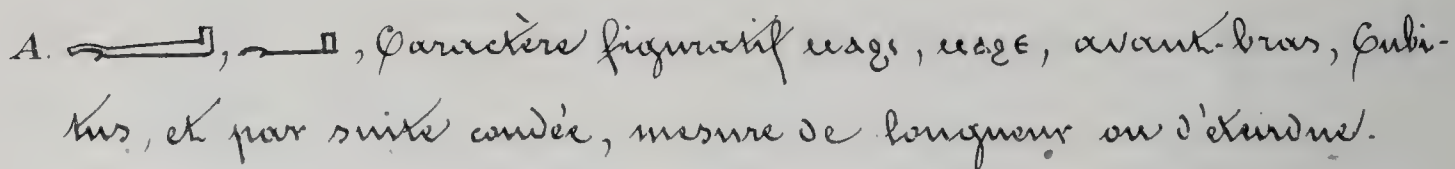 A. 𓂝, 𓂝, Caractère figuratif ⲙⲁϩⲓ, ⲙⲁϩⲉ, avant-bras, Cubi-
tus, et par suite coudée, mesure de longueur ou d'étendue.